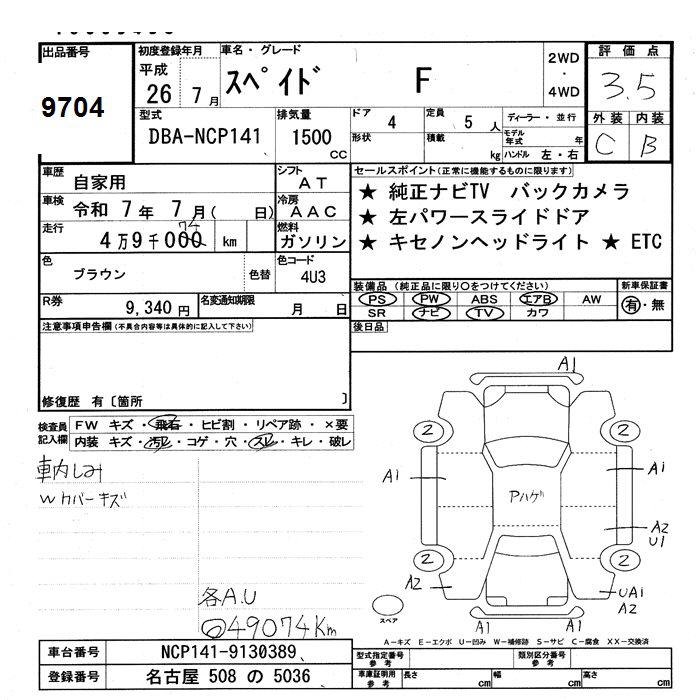 出品番号
9704
初度登録年月
平成
26 7 月
車名・グレード
スペイド F
2WD
・
4WD
評価点
3.5
外装 内装
C B
型式
DBA-NCP141
排気量
1500
CC
ドア
4
定員
5 人
ディーラー・並行
形状
積載
kg
モデル年式
年
ハンドル 左・右
車歴
自家用
シフト
AT
車検
令和 7 年 7 月( 日)
冷房
AAC
走行
4 万 9 千 000 km
74
燃料
ガソリン
色
ブラウン
色替
色コード
4U3
R券
9,340 円
名変通知期限
月 日
セールスポイント(正常に機能するものに限ります)
★ 純正ナビTV バックカメラ
★ 左パワースライドドア
★ キセノンヘッドライト ★ ETC
装備品 (純正品に限り〇をつけてください)
新車保証書
PS PW ABS エアB AW
SR ナビ TV カワ
有・無
注意事項申告欄(不具合内容等は具体的に記入して下さい)
後日品
修復歴 有〔箇所 〕
検査員
記入欄
FW キズ・飛石・ヒビ割・リペア跡・×要
内装 キズ・汚レ・コゲ・穴・スレ・キレ・破レ
車内しみ
Wカバーキズ
各A.U
49074Km
A1
2 2
A1 A1
Pハゲ
A2
U1
2 2
A2
UA1
A2
A1 A1
スペア
A-キズ E-エクボ U-凹み W-補修跡 S-サビ C-腐食 XX-交換済
車台番号
NCP141-9130389
登録番号
名古屋 508 の 5036
型式指定番号
参考
類別区分番号
参考
車庫証明用
参考
長さ
cm
幅
cm
高さ
cm